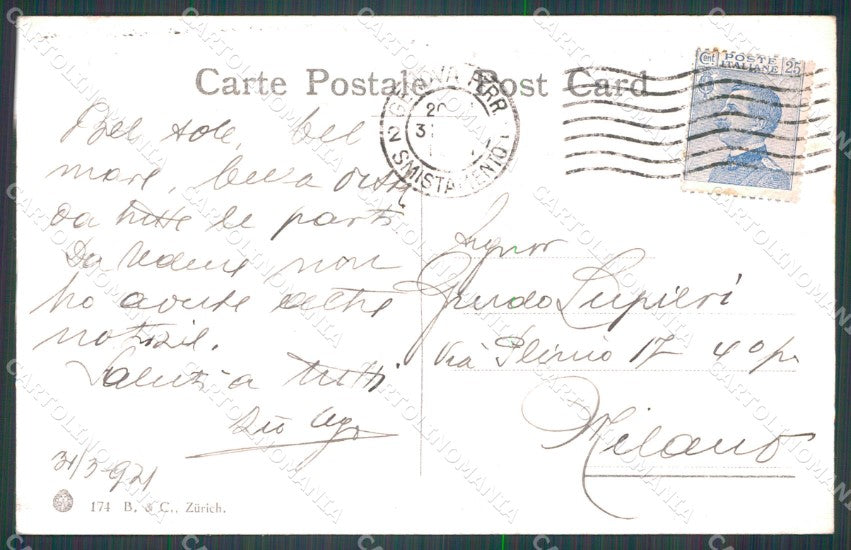 Carte Postale Post Card
POSTE
ITALIANE
Cent 25
FERR.
20
2 SMISTAMENTO
Bel sole, bel
mare, bella
da tutte le parti
Da non
ho avute altre
notizie.
Saluti a tutti
Zio Ugo
31/3-921
Signor
Guido Lupieri
Via Plinio 17 4o p.
Milano
174 B. & C., Zürich.
CARTOLINOMANIA